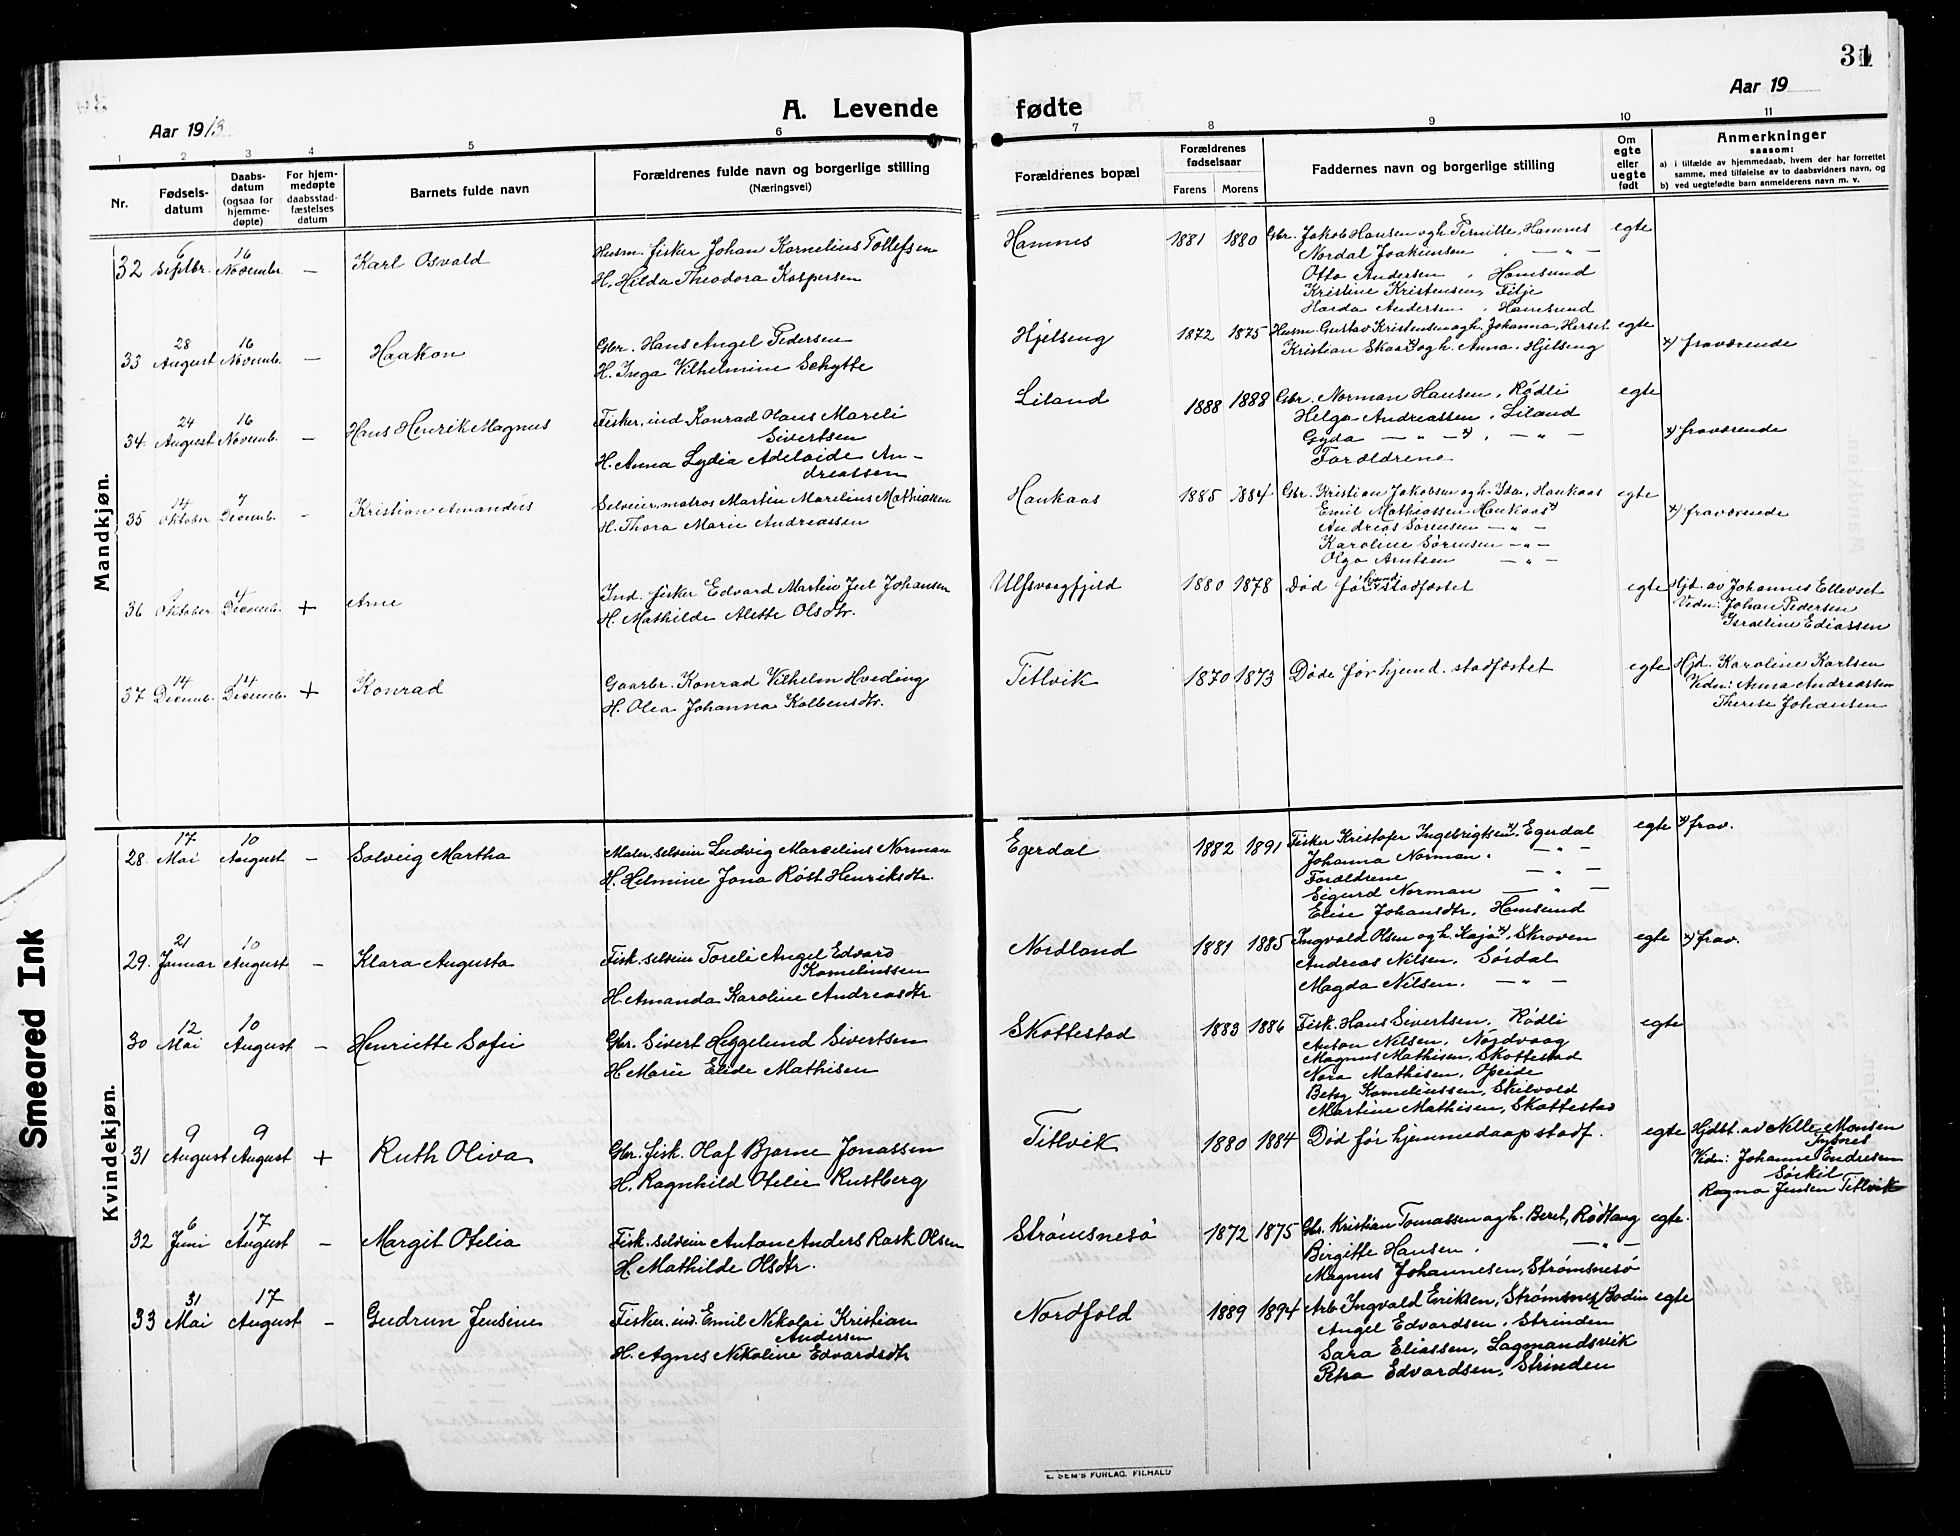 31
Aar 1913
A. Levende
fødte
Aar 19
1 2 3 4 5 6 7 8 9 10 11
Nr.
Fødsels-
datum
Daabs-
datum
(ogsaa for
hjemme-
døpte)
For hjem-
medøpte
daabsstad-
fæstelses
datum
Barnets fulde navn
Forældrenes fulde navn og borgerlige stilling
(Næringsvei)
Forældrenes bopæl
Forældrenes
fødselsaar
Farens Morens
Faddernes navn og borgerlige stilling
Om
egte
eller
uegte
født
Anmerkninger
saasom:
a) i tilfælde av hjemmedaab, hvem der har forrettet
samme, med tilføielse av to daabsvidners navn, og
b) ved uegtefødte barn anmelderens navn m. v.
Mandkjøn.
32 6 Septbr. 16 Novembr — Karl Osvald
Husm. fisker Johan Kornelius Tollefsen
H. Hilda Theodora Kaspersen
Hamnes 1881 1880
Gbr. Jakob Hansen og h. Pernille, Hamnes
Nordal Joakimsen . — " —
Otto Andersen , Hamsund
Kristine Kristensen, Filje
Harda Andersen , Hamsund
egte
33 28 August 16 Novemb. — Haakon
Gbr. Hans Angel Pedersen
H. Inga Vilhelmine Schytte
Hjelseng 1872 1875
Husm. Gustav Kristensen og h. Johanna, Herset
Kristian Skaar x) og h. Anna, Hjelseng
egte
x) fraværende
34. 24 August 16 Novemb. — Hans Henrik Magnus
Fisker, ind Konrad Hans Mareli
Sivertsen
H. Anna Lydia Adelaide An-
dreassen
Liland 1888 1888
Gbr. Norman Hansen, Rødli
Helga Andreassen, Liland
Gyda — " — x), — " —
Forældrene
egte
x) fraværende
35 14 Oktober 7 Decemb. - Kristian Amandus
Selveier, matros Martin Marelius Mathiassen
H. Thora Marie Andreassen
Haukaas 1885 1884
Gbr. Kristian Jakobsen og h. Ida, Haukaas
Emil Mathiassen Haukaas x)
Andreas Sørensen — " —
Karoline Sørensen — " —
Olga Arntsen — " —
egte
x) fraværende
36 Oktober Decemb. + Arne
Ind. fisker Edvard Martin Juel Johansen
H. Mathilde Alette Olsdtr.
Ulfsvaagfjeld 1880 1878
Død før hjemd. stadfæstet
egte
Hjd. av Johannes Ellevset
Vidn: Johan Pedersen
Israeline Ediassen
37 14 Decemb. 14 Decemb. + Konrad
Gaarbr. Konrad Vilhelm Hveding
H. Olea Johanna Kolbensdtr.
Titlvik 1870 1873
Døde før hjemd. stadfæstet
egte
Hjd. Karoline Karlsen
Vidn: Anna Andreassen
Therese Johansen
Kvindekjøn.
28. 17 Mai 10 August — Solveig Martha
Maler, selveier Ludvig Marcelius Norman
H. Helmine Jona Røst Henriksdtr.
Egerdal 1882 1891
Fisker Kristofer Ingebrigtsen x), Egerdal
Johanna Norman. — " —
Forældrene — " —
Sigurd Norman — " —
Elise Johansdtr, Hamsund
egte
x) frav.
29. 21 Januar 10 August — Klara Augusta
Fisk. selveier Toreli Angel Edvard
Korneliussen
H. Amanda Karoline Andreasdtr
Nordland 1881 1885
Ingvald Olsen og h. Kaja x), Skroven
Andreas Nilsen, Sørdal
Magda Nilsen. — " —
egte
x) frav.
30 12 Mai 10 August — Henriette Sofie
Gbr. Sivert Heggelund Sivertsen
H Marie Elide Mathisen
Skottestad 1883 1886
Fisk. Hans Sivertsen, Rødli
Anton Nilsen, Nordvaag
Magnus Mathisen, Skottestad
Nora Mathisen, Opeide
Betsy Korneliussen, Skilvold
Martine Mathisen, Skottestad
egte
31 9 August 9 August + Ruth Oliva
Gbr. fisk. Olaf Bjarne Jonassen
H. Ragnhild Otelie Rustberg
Titlvik 1880 1884
Død før hjemmedaap stadf.
egte
Hjdbt. av Nelle Monsen
Vidn: Johanne Endresen
Sørkil
Ragna Jensen Titlvik
32 6 Juni 17 August — Margit Otelia
Fisk. selveier Anton Anders Rask Olsen
H. Mathilde Olsdtr.
Strømsnesø 1872 1875
Gbr. Kristian Tomassen og h. Beret, Rødtang
Birgitte Hansen. — " —
Magnus Johannesen, Strømsnesø
egte.
33 31 Mai 17 August — Gudrun Jensine
Fisker. ind. Emil Nikolai Kristian
Andersen
H. Agnes Nikoline Edvardsdtr
Nordfold 1889 1894
Arb. Ingvald Eriksen, Strømsnes, Bodin
Angel Edvardsen, Strinden
Sara Eliassen, Lagmandsvik
Petra Edvardsen, Strinden
egte
E. SEM'S FORLAG, F.HALD
Smeared Ink